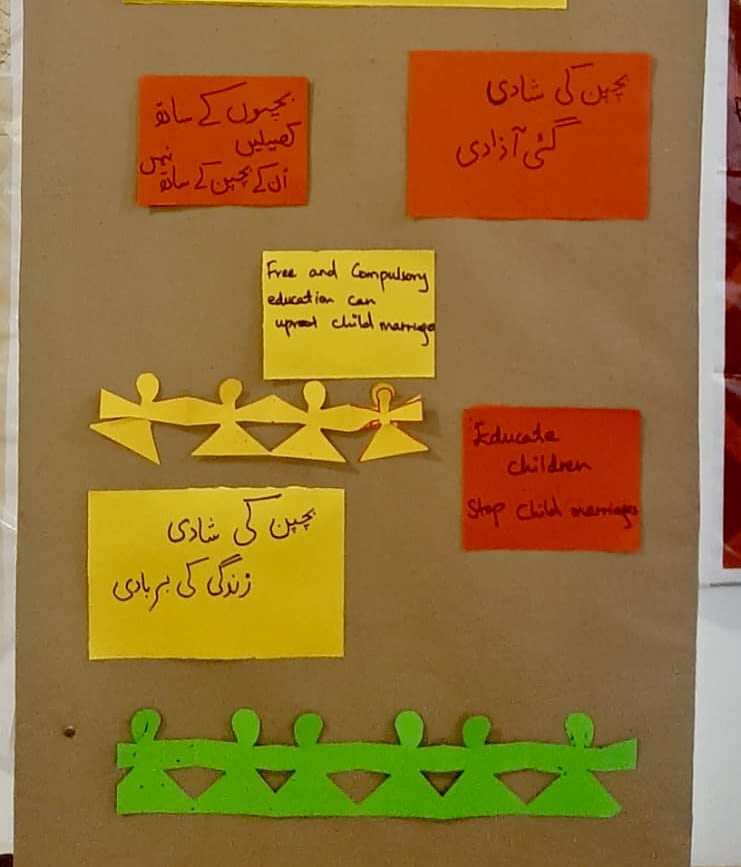 بچپن کی شادی
گئی آذادی
بچوں کے ساتھ
کھیلیں
نہیں
اُن کے بچپن کے ساتھ
Free and Compulsory
education can
uproot child marriage
Educate
children
Stop child marriages
بچپن کی شادی
زندگی کی بربادی